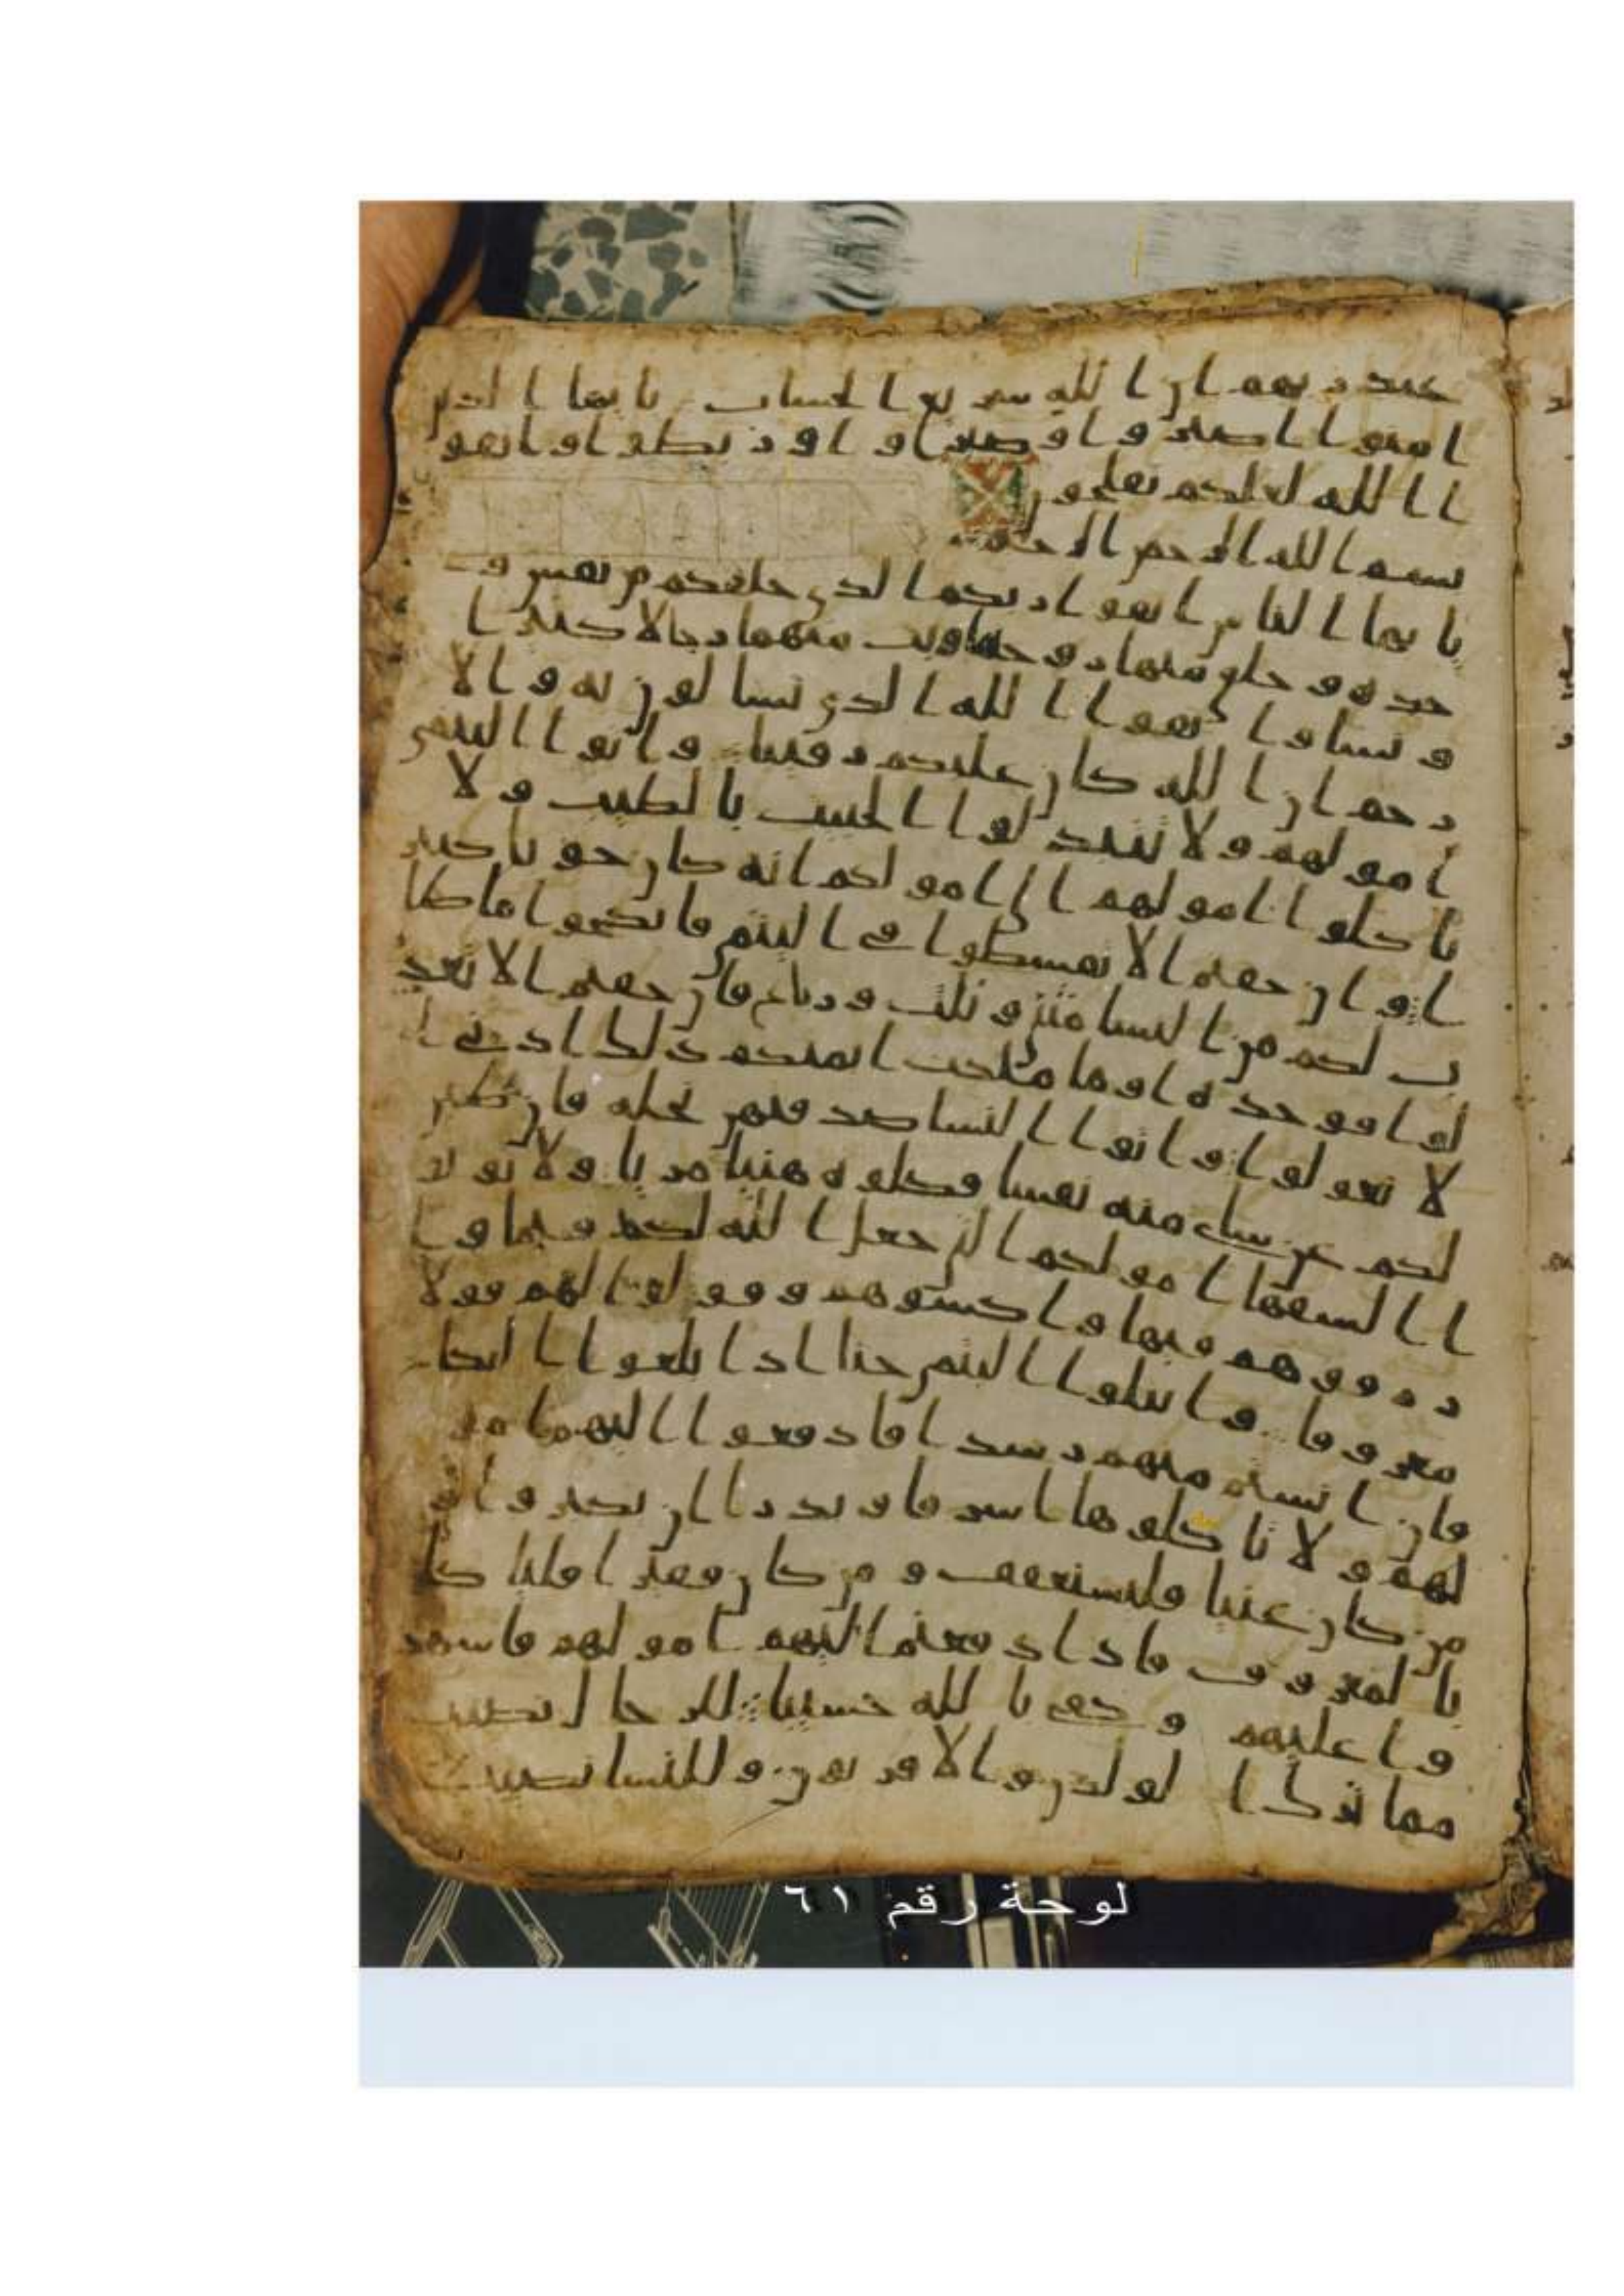 عند ربهم ان الله سريع الحساب يايها الذين
امنوا اصبروا وصبروا و
ا الله لعلكم تفلحون
بسم الله الرحمن الرحيم
يايها الناس اتقوا ربكم الذي خلقكم من نفس و
حده وخلق منها زوجها وبث منهما رجالا كثيرا
ونسا واتقوا ا الله الذي تسالون به والا
رحم ان الله كان عليكم رقيبا واتوا اليتمى
امولهم ولا تتبدلوا الخبيث بالطيب ولا
تاكلوا امولهم الى امولكم انه كان حوبا كبير
ا وان خفتم الا تقسطوا في اليتمى فانكحوا ما طا
ب لكم من النسا مثنى وثلث ورباع فان خفتم الا تعد
لوا فوحده او ما ملكت ايمنكم ذلك ادنى ا
لا تعولوا واتوا النسا صدقتهن نحله فان طبن
لكم عن شاي منه نفسا فكلوه هنيا مريا ولا توتو
ا السفها امولكم التي جعل الله لكم قيما وا
رزقوهم فيها واكسوهم وقولوا لهم قولا
معروفا وابتلوا اليتمى حتا اذا بلغوا النكاح
فان انستم منهم رشدا فادفعوا اليهم امو
لهم ولا تاكلوها اسرفا وبدارا ان يكبروا و
من كان غنيا فليستعفف ومن كان فقيرا فليا كل
بالمعروف فاذا دفعتم اليهم امولهم فاشهد
وا عليهم وكفى بالله حسيبا للرجال نصيب
مما ترك الولدن والاقربون وللنسا نصيب
لوحة رقم ٦١